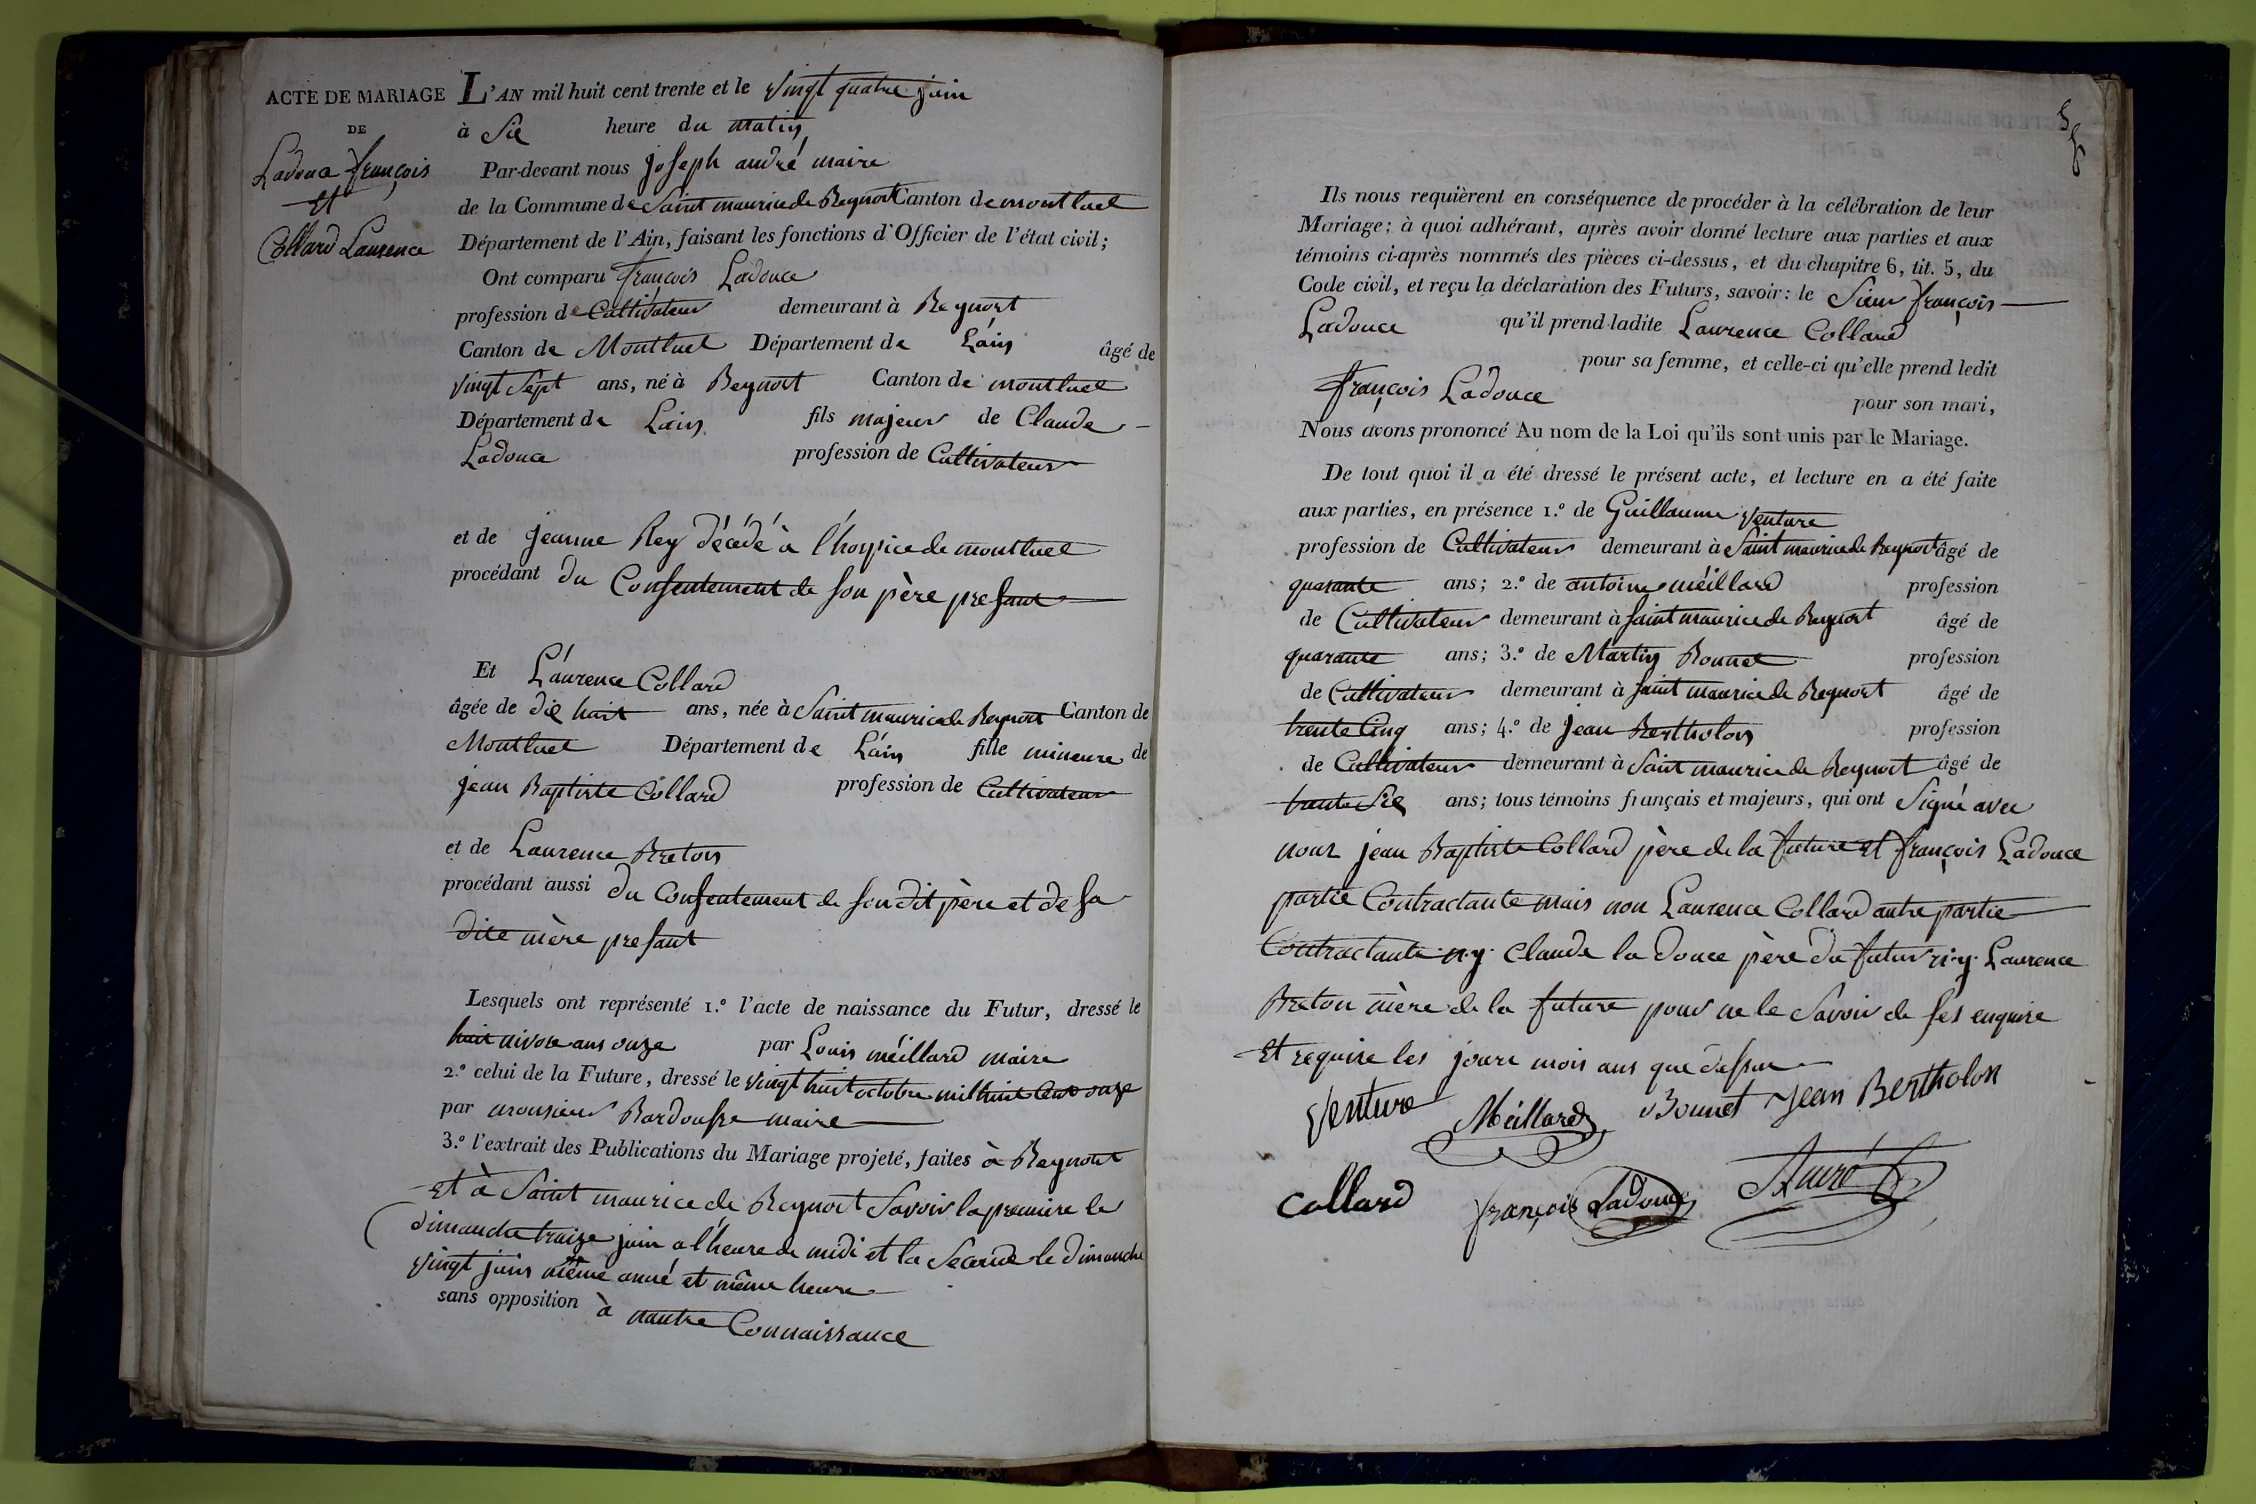 ACTE DE MARIAGE
DE
Ladouce françois
Et
Collard Laurence
L'AN mil huit cent trente et le vingt quatre juin
à Six heure du matin
Par-devant nous joseph andré maire
de la Commune de Saint maurice de Beynost Canton de montluel
Département de l'Ain, faisant les fonctions d'Officier de l'état civil;
Ont comparu françois Ladouce
profession de Cultivateur demeurant à Beynost
Canton de Montluel Département de L'ain âgé de
vingt Sept ans, né à Beynost Canton de montluel
Département de Lain fils majeur de Claude
Ladouce profession de Cultivateur
et de jeanne Rey décédé à l'hospice de montluel
procédant du Consentement de son père presant
Et Laurence Collard
âgée de dix huit ans, née à Saint maurice de Beynost Canton de
Montluel Département de L'ain fille mineure de
jean Baptiste Collard profession de Cultivateur
et de Laurence Breton
procédant aussi du Consentement de son dit père et de sa
dite mère presant
Lesquels ont représenté 1.º l'acte de naissance du Futur, dressé le
huit nivose ans onze par Louis méillard maire
2.º celui de la Future, dressé le vingt huit octobre mil huit Cent onze
par monsieur maire
3.º l'extrait des Publications du Mariage projeté, faites à Beynost
et à Saint maurice de Beynost Savoir la première le
dimanche traize juin a l'heure de midi et la Seconde le dimanche
vingt juin même anné et même heure
sans opposition à nautre Connaissance
5
Ils nous requièrent en conséquence de procéder à la célébration de leur
Mariage; à quoi adhérant, après avoir donné lecture aux parties et aux
témoins ci-après nommés des pièces ci-dessus, et du chapitre 6, tit. 5, du
Code civil, et reçu la déclaration des Futurs, savoir: le Sieur françois
Ladouce qu'il prend ladite Laurence Collard
pour sa femme, et celle-ci qu'elle prend ledit
françois Ladouce pour son mari,
Nous avons prononcé Au nom de la Loi qu'ils sont unis par le Mariage.
De tout quoi il a été dressé le présent acte, et lecture en a été faite
aux parties, en présence 1.º de Guillaume Venture
profession de Cultivateur demeurant à Saint maurice de Beynost âgé de
quarante ans; 2.º de antoine méillard profession
de Cultivateur demeurant à Saint maurice de Beynost âgé de
quarante ans; 3.º de Martin Bonnet profession
de Cultivateur demeurant à Saint maurice de Beynost âgé de
trente Cinq ans; 4.º de jean Bertholon profession
de Cultivateur demeurant à Saint maurice de Beynost âgé de
trente Six ans; tous témoins français et majeurs, qui ont Signé avec
nous jean Baptiste Collard père de la future et françois Ladouce
partie Contractante mais non Laurence Collard autre partie
Contractante n.y. Claude la douce père du futur n.y. Laurence
Breton mère de la future pour ne le Savoir de ses enquire
Et require les joure mois ans que dessu
Venture Méillard Bonnet Jean Bertholon
Collard françois Ladouce André